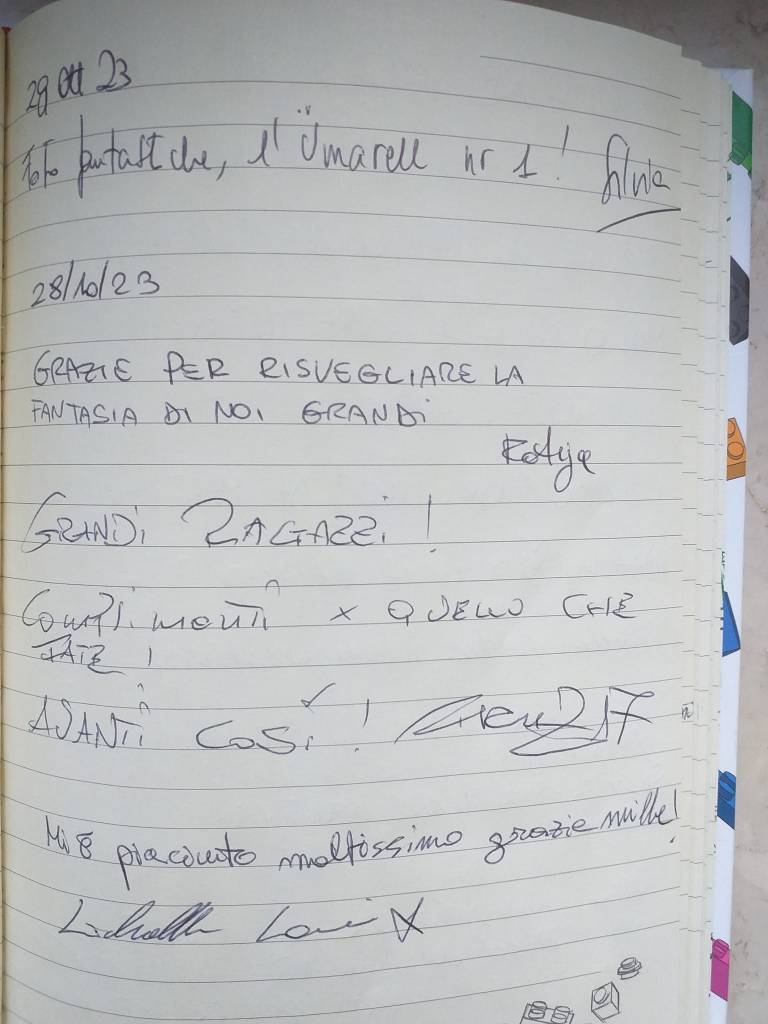 29 Ott 23
Foto fantastiche, l'Ümarell nr 1! Silvia
28/10/23
GRAZIE PER RISVEGLIARE LA
FANTASIA DI NOI GRANDI
Katya
GRANDI RAGAZZI!
Complimenti x QUELLO CHE
FATE!
AVANTI COSÌ!
Mi è piaciuto moltissimo grazie mille!